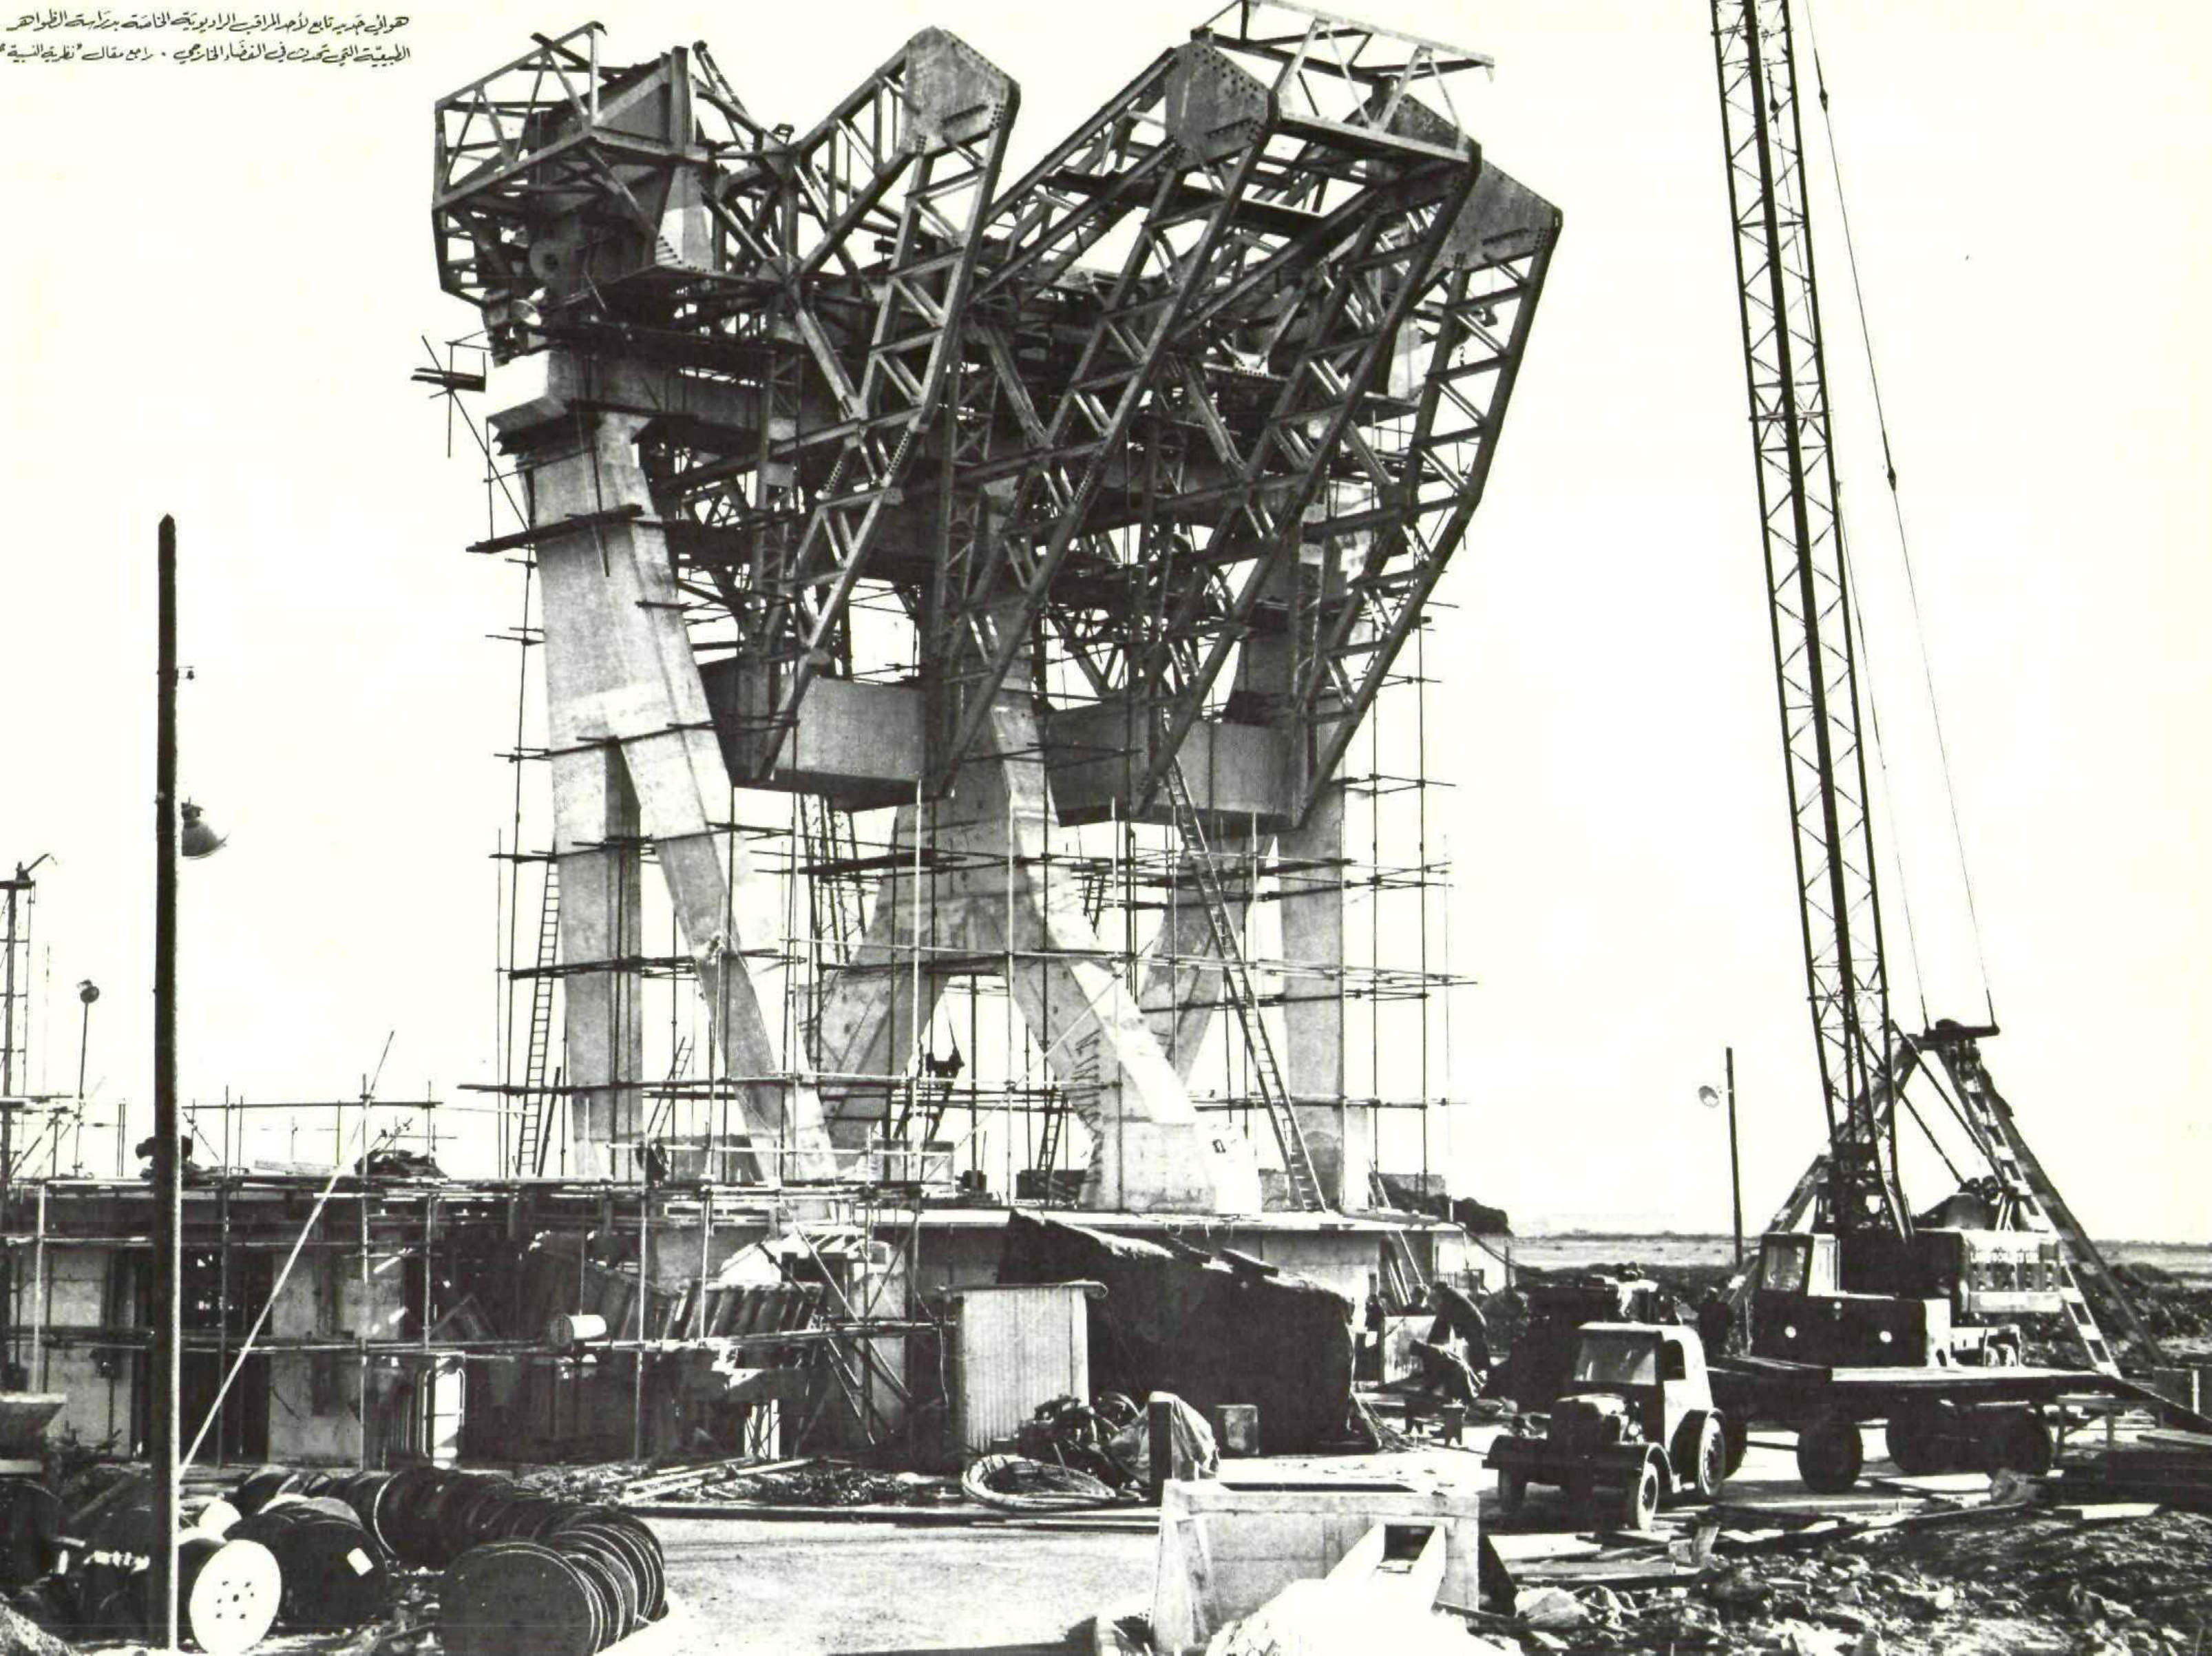 هوائي جديد تابع لأحد المراقب الراديويّة الخاصّة بدراسة الظواهر
الطبيعيّة التي تحدث في الفضاء الخارجي . راجع مقال "نظرية النسبية"